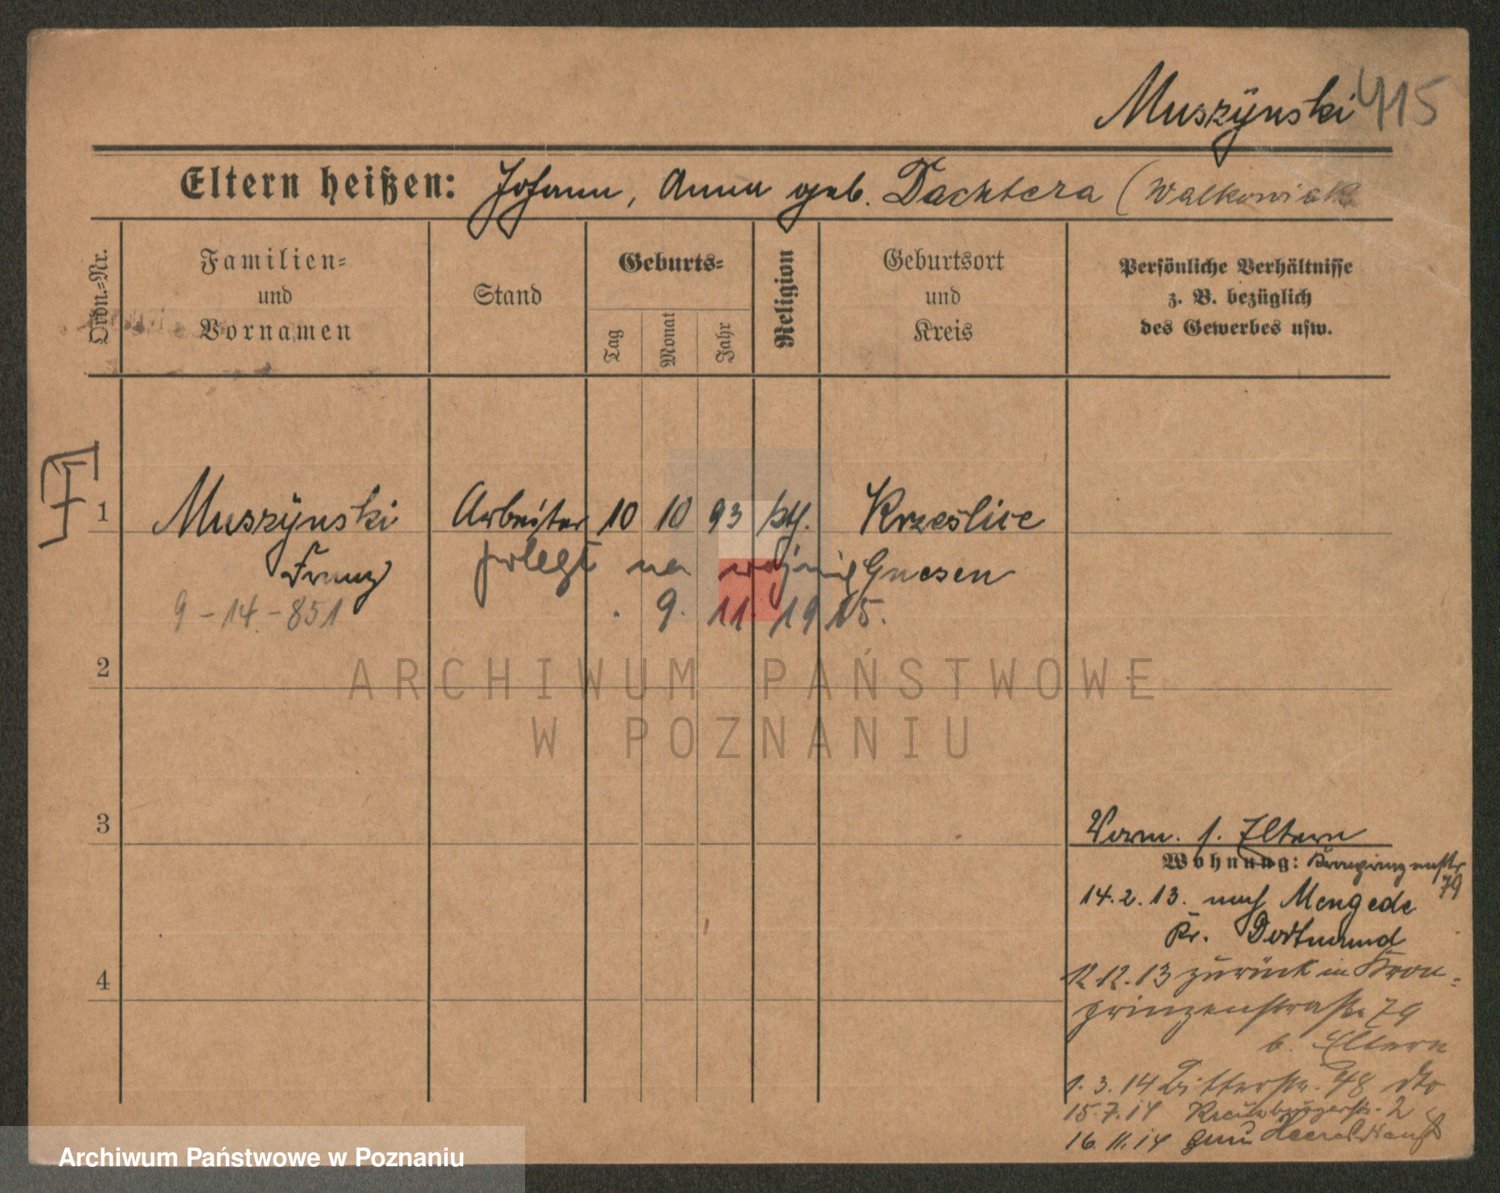 Muszÿnski 415
Eltern heißen: Johann, Anna geb. Dachtera (Walkowiak
Ordn.-Nr.
Familien=
und
Vornamen
Stand
Geburts=
Tag
Monat
Jahr
Religion
Geburtsort
und
Kreis
Persönliche Verhältnisse
z. B. bezüglich
des Gewerbes usw.
1 Muszÿnski Arbeiter 10 10 93 kth. Krzeslice
Franz poległ na wojnie Gnesen
9-14.-851 . 9. 11. 1915.
2
3
4
Vorm. s. Eltern
Wohnung: Kronprinzenstr
79
14.2.13. nach Mengede
Kr. Dortmund
12.12.13 zurück in Kron=
prinzenstraße 79
b. Eltern
1.3.14 Bitterstr. 48 dto
15.7.14 Kreuzburgerstr. 2
16.11.14 zum Heeresdienst
ARCHIWUM PAŃSTWOWE
W POZNANIU
Archiwum Państwowe w Poznaniu